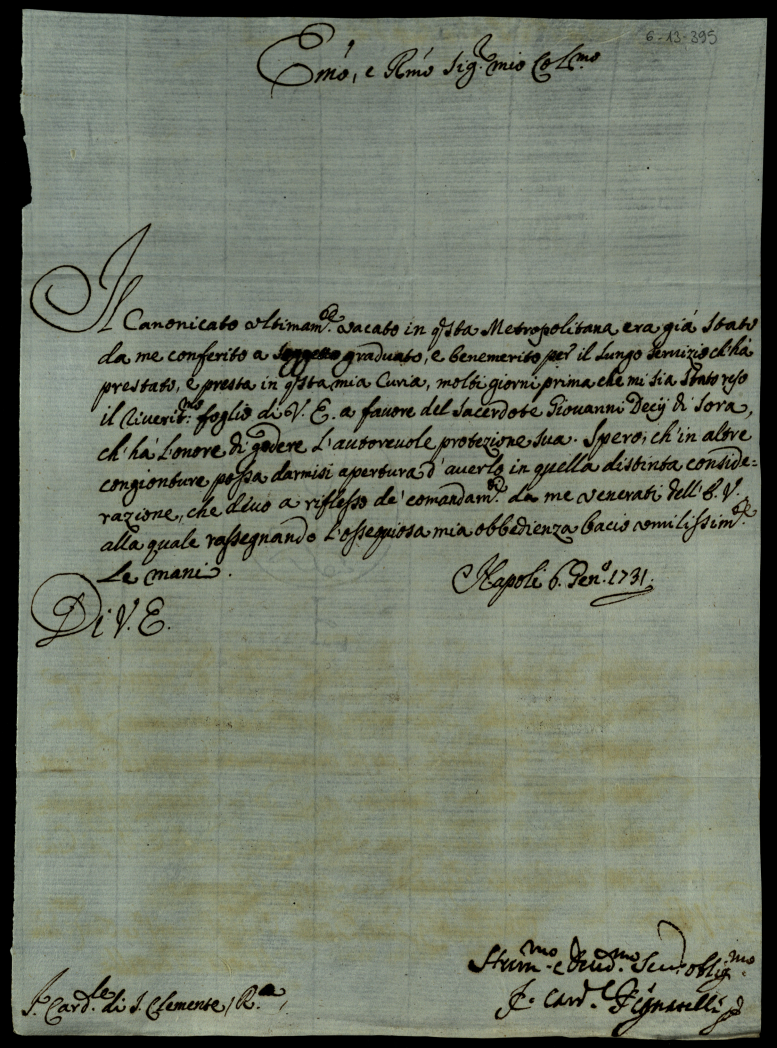 6-13-395
Emo, e Rmo Sig.r mio Col.mo
Il Canonicato ultimam.te vacato in q̃sta Metropolitana era già stato
da me conferito a soggetto graduato, e benemerito per il lungo servizio ch'hà
prestato, e presta in q̃sta mia Curia, molti giorni prima che mi sia stato reso
il riverit.mo foglio di V. E. a favore del Sacerdote Giovanni Decij di Sora,
ch'hà l'onore di godere l'autorevole protezione sua. Spero, ch'in altre
congionture possa darmisi apertura d'averlo in quella distinta conside=
razione, che devo a riflesso de' comandam.ti da me venerati dell' E. V.
alla quale rassegnando l'ossequiosa mia obbedienza bacio umilissim.te
le mani.
Napoli 6. Gen.o 1731.
Di V. E.
obblig.mo
S. Card.le di S. Clemente / R.a /
F. Card.l Pignatelli